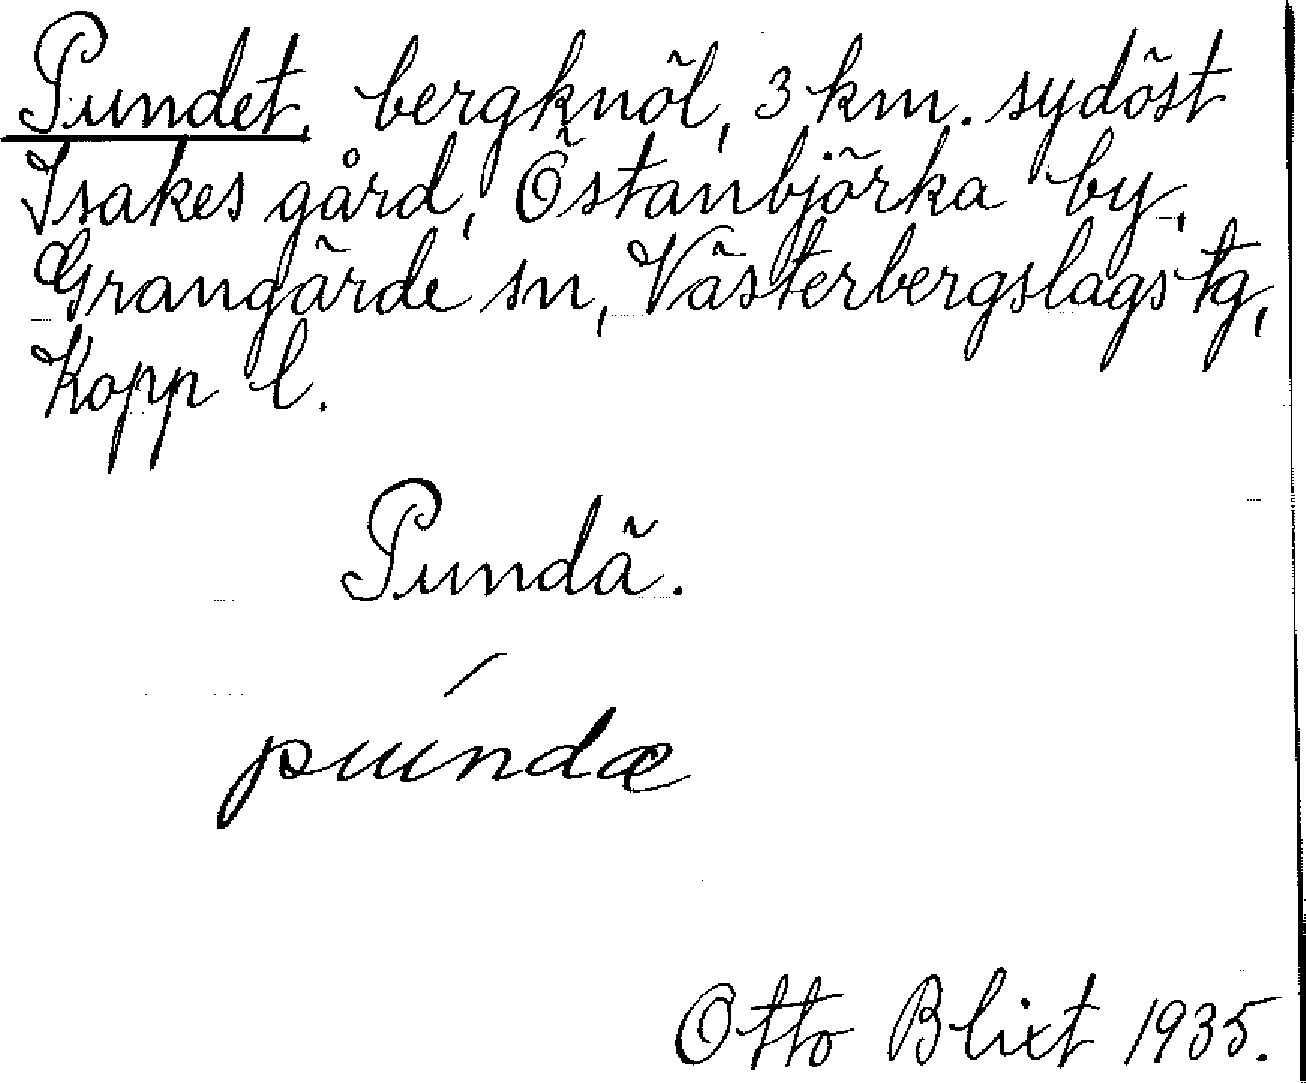 Pundet, bergknöl, 3 km. sydöst
Isakes gård, Östanbjörka by,
Grangärde sn, Västerbergslags tg,
Kopp l.
Pundä.
pundæ
Otto Blixt 1935.